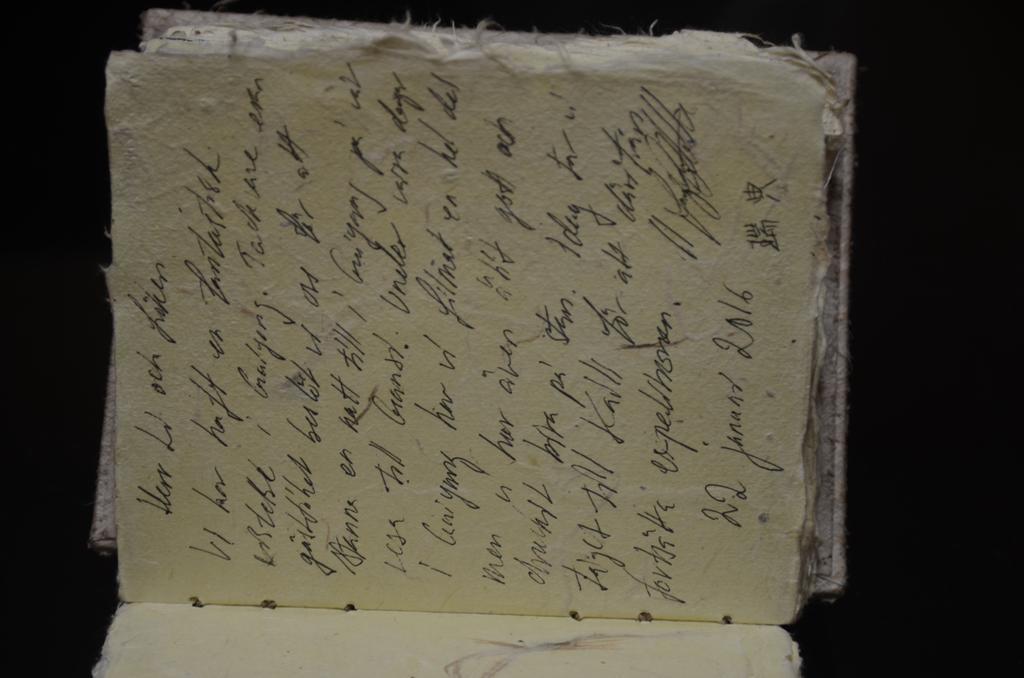 Herr Li och
Vi har haft en fantastisk
vistelse i Guiyang. Tack vare eran
gästfrihet beslöt vi oss för att
stanna en natt till i Guiyang på väg
resa till Guanxi. Under våra dagar
i Guiyang har vi filmat en hel del
men vi har även ätit gott och
druckit bra på stan. Idag tar vi
tåget till Kaili för att därifrån
fortsätta expeditionen.
22 januari 2016 瑞典